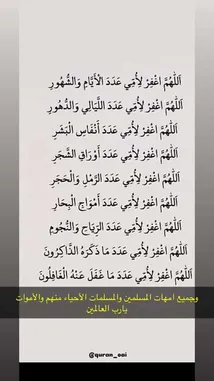 اَللّٰهُمَّ اغْفِرْ لِأُمِّي عَدَدَ الْأَيَّامِ وَالشُّهُورِ
اَللّٰهُمَّ اغْفِرْ لِأُمِّي عَدَدَ اللَّيَالِي وَالدُّهُورِ
اَللّٰهُمَّ اغْفِرْ لِأُمِّي عَدَدَ أَنْفَاسِ الْبَشَرِ
اَللّٰهُمَّ اغْفِرْ لِأُمِّي عَدَدَ أَوْرَاقِ الشَّجَرِ
اَللّٰهُمَّ اغْفِرْ لِأُمِّي عَدَدَ الرَّمْلِ وَالْحَجَرِ
اَللّٰهُمَّ اغْفِرْ لِأُمِّي عَدَدَ أَمْوَاجِ الْبِحَارِ
اَللّٰهُمَّ اغْفِرْ لِأُمِّي عَدَدَ الرِّيَاحِ وَالنُّجُومِ
اَللّٰهُمَّ اغْفِرْ لِأُمِّي عَدَدَ مَا ذَكَرَهُ الذَّاكِرُونَ
اَللّٰهُمَّ اغْفِرْ لِأُمِّي عَدَدَ مَا غَفَلَ عَنْهُ الْغَافِلُونَ
وجميع امهات المسلمين والمسلمات الأحياء منهم والأموات
يارب العالمين
@quran_oai